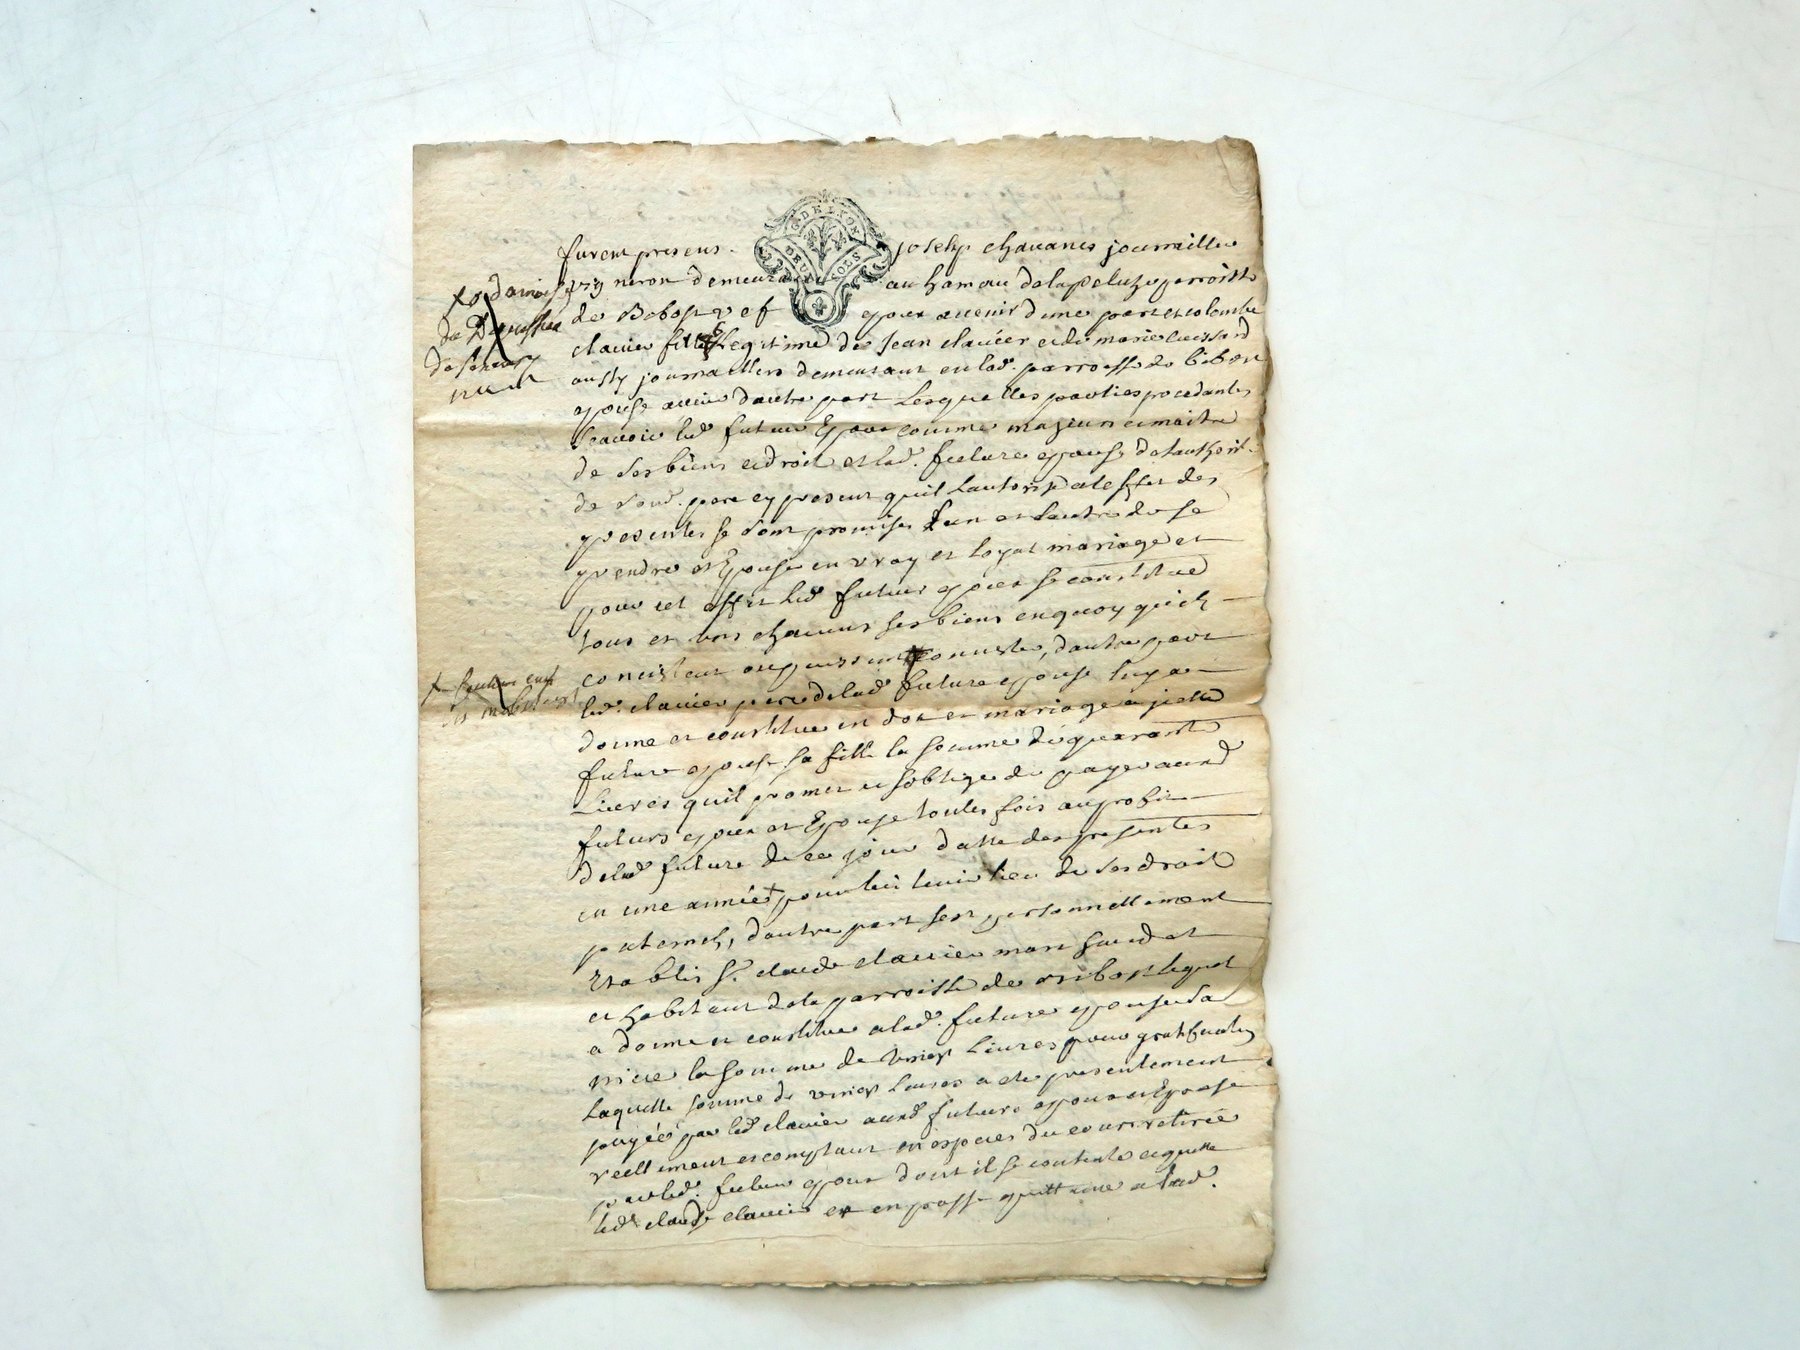 furent presens
G. DE LYON
DEUX SOLS
joseph chavanes journallier
vigneron demeurant au hameau de la parroisse
de Bibost vef epoux avenir dune part et colombe
clavier fille Legitime de Jean clavier et de marie
aussy journalliers demeurant en lad. parroisse de bibost
epouse avenir dautre part Lesquelles parties procedantes
scavoir led futur Epoux comme majeur et maitre
de ses biens et droit et lad. future epouse de lauthorité
de sond. pere cy present quil lautorise a leffet des
presentes se sont promises lun et lautre de se
prendre et Epouser en vray et loyal mariage et
pour cet effet led futur epoux se constitue
tous et uns chacuns ses biens en quoy quils
concistent ou puissent concister, dautre part
led. clavier pere de lad future epouse luy a
donné et constitué en dot et mariage a jcelle
future epouse sa fille la somme de quarante
Livres quil promet et soblige de payer aux d
futurs epoux et Epouse toutes fois au profit
de lad future de ce jour datte des presentes
en une année pour luy tenir lieu de ses droit
paternels, dautre part sest personnellement
Etablis Sr. claude clavier marchand et
et habitant de la parroisse de bibost lequel
a donné et constitué a lad. future epouse sa
niece la somme de vingt Livres pour gratification
Laquelle somme de vingt Livres a eté presentement
payée par led clavier auxd futurs epoux et Epouse
reellement et comptant en especes du cours retirée
par led. futur epoux dont il se contente et quitte
led. claude clavier et en passe quittance a lad.